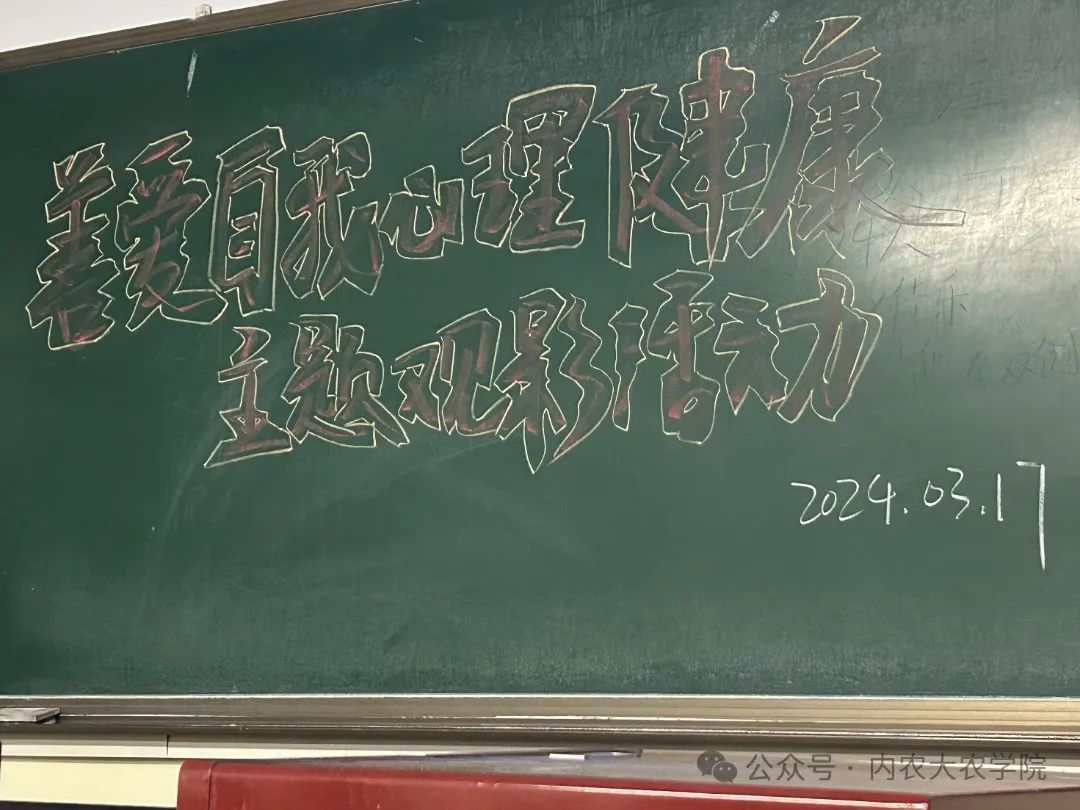 善爱自我心理健康
主题观影活动
2024.03.17
公众号 · 内农大农学院